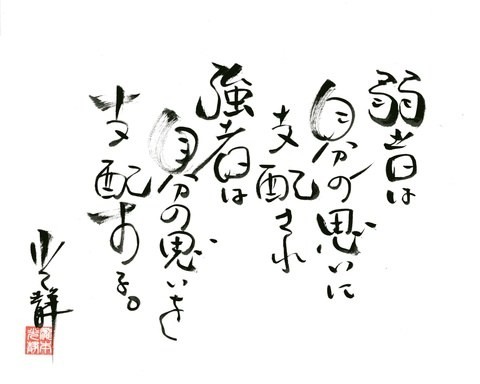 弱者は
自分の思いに
支配され
強者は
自分の思いを
支配する。